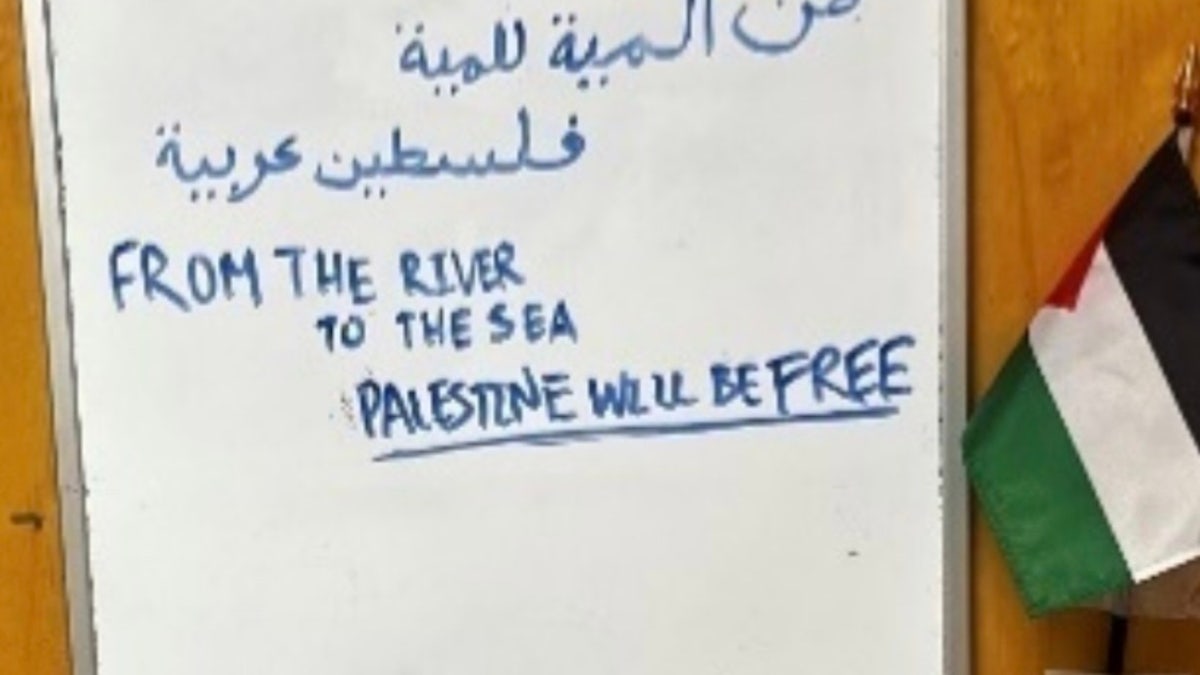 من المية للمية
فلسطين عربية
FROM THE RIVER
TO THE SEA
PALESTINE WILL BE FREE